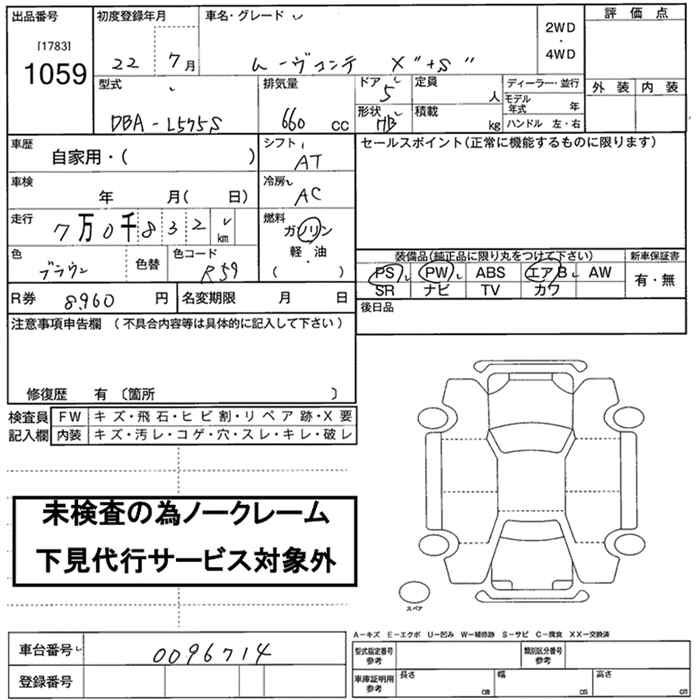 出品番号 初度登録年月 車名・グレード レ 2WD ・ 4WD 評 価 点
[1783] 1059 22 7月 ムーヴコンテ X "+S"
型式 レ 排気量 ドア レ 5 定員 人 ディーラー・並行 外 装 内 装
DBA-L575S 660 CC 形状 レ HB 積載 kg モデル年式 年
ハンドル 左・右
車歴 自家用・( ) シフト AT セールスポイント(正常に機能するものに限ります)
車検 年 月( 日) 冷房 レ AC
走行 7万0千832 レ km 燃料 ガソリン
軽・油
( )
色 ブラウン 色替 色コード R59
装備品(純正品に限り丸をつけて下さい) 新車保証書
PS レ PW レ ABS エアB レ AW 有・無
SR ナビ TV カワ
R券 8960 円 名変期限 月 日 後日品
注意事項申告欄 (不具合内容等は具体的に記入して下さい)
修復歴 有 〔箇所 〕
検査員 FW キズ・飛石・ヒビ割・リペア跡・X要
記入欄 内装 キズ・汚レ・コゲ・穴・スレ・キレ・破レ
未検査の為ノークレーム
下見代行サービス対象外
スペア
A－キズ E－エクボ U－凹み W－補修跡 S－サビ C－腐食 XX－交換済
車台番号 レ 0096714 型式指定番号 参考 類別区分番号 参考
登録番号 車庫証明用 参考 長さ cm 幅 cm 高さ cm